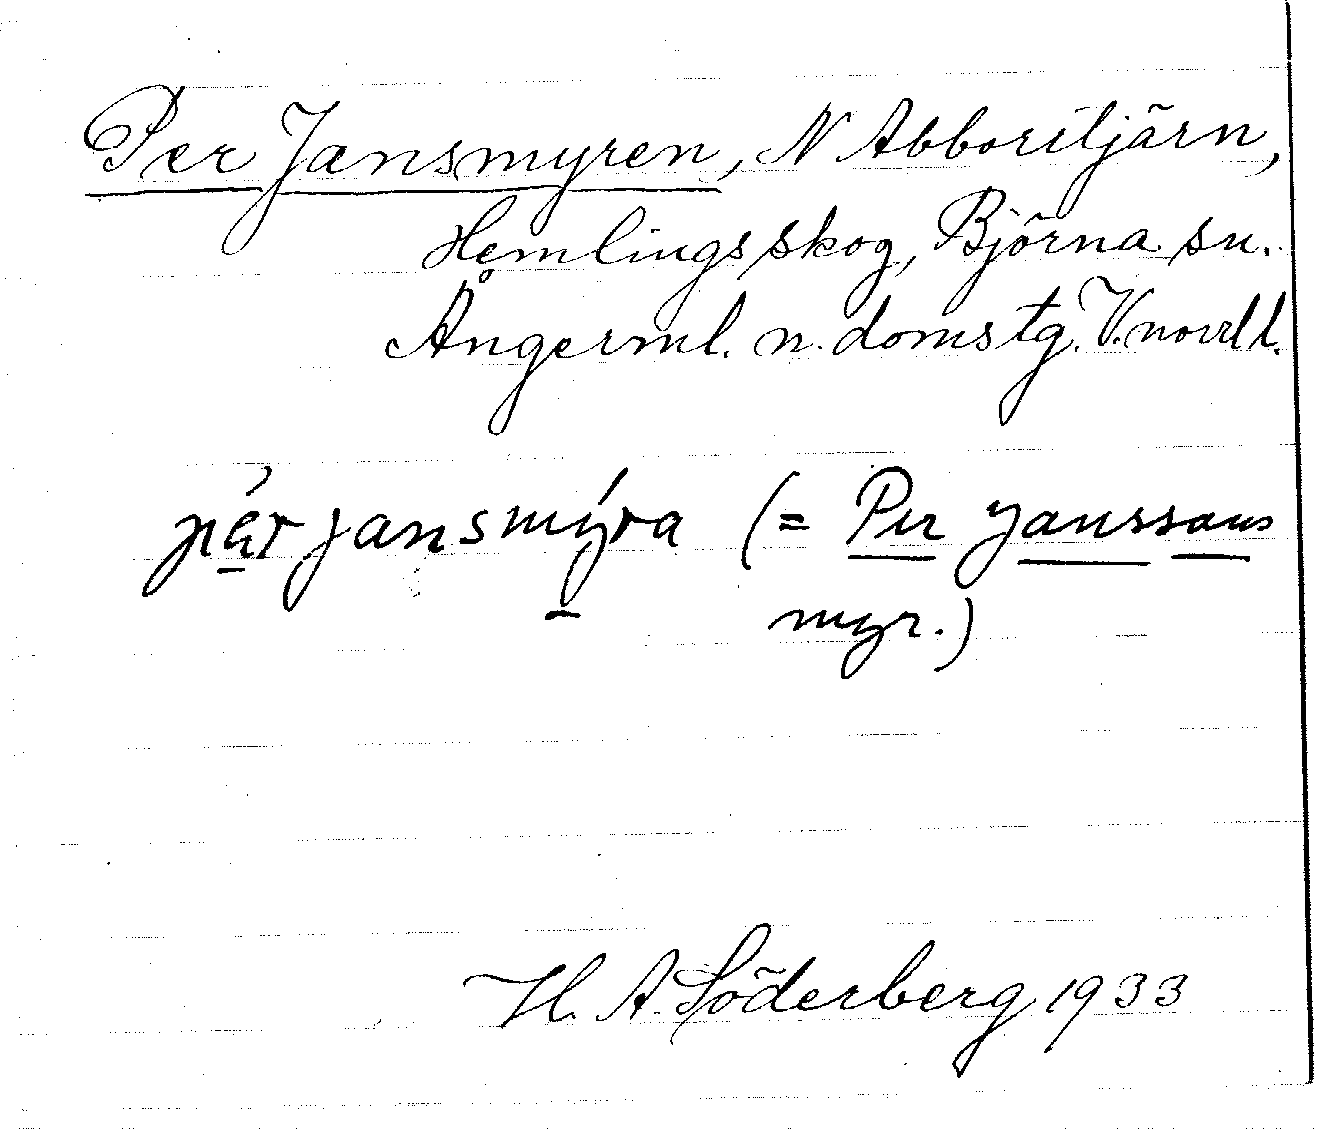 Per Jansmyren, N Abborrtjärn,
Hemlingsskog, Björna sn.
Ångerml. n. domstg. V.norrl l.
pér jansmýra (= Per Janssons
myr.)
H. A. Söderberg 1933